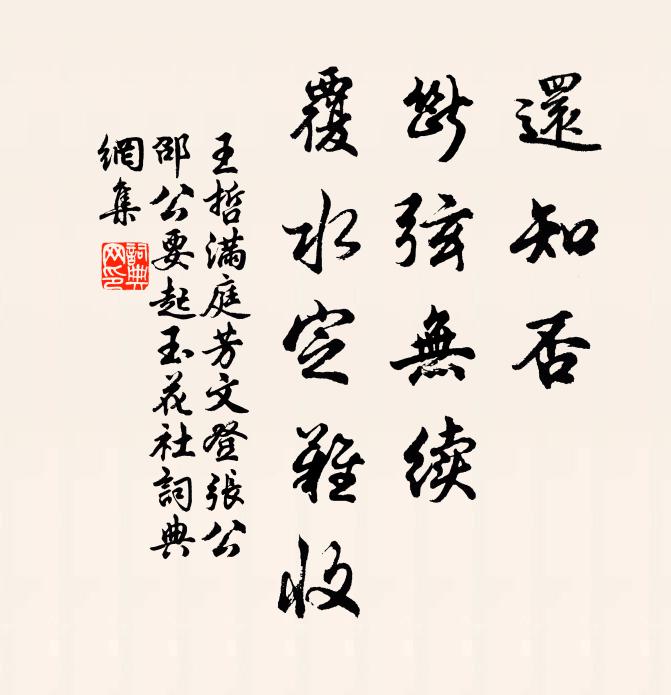 還知否
斷弦無續
覆水定難收
王哲滿庭芳文登張公
邵公要起玉花社詞典
網集
詞典
网印